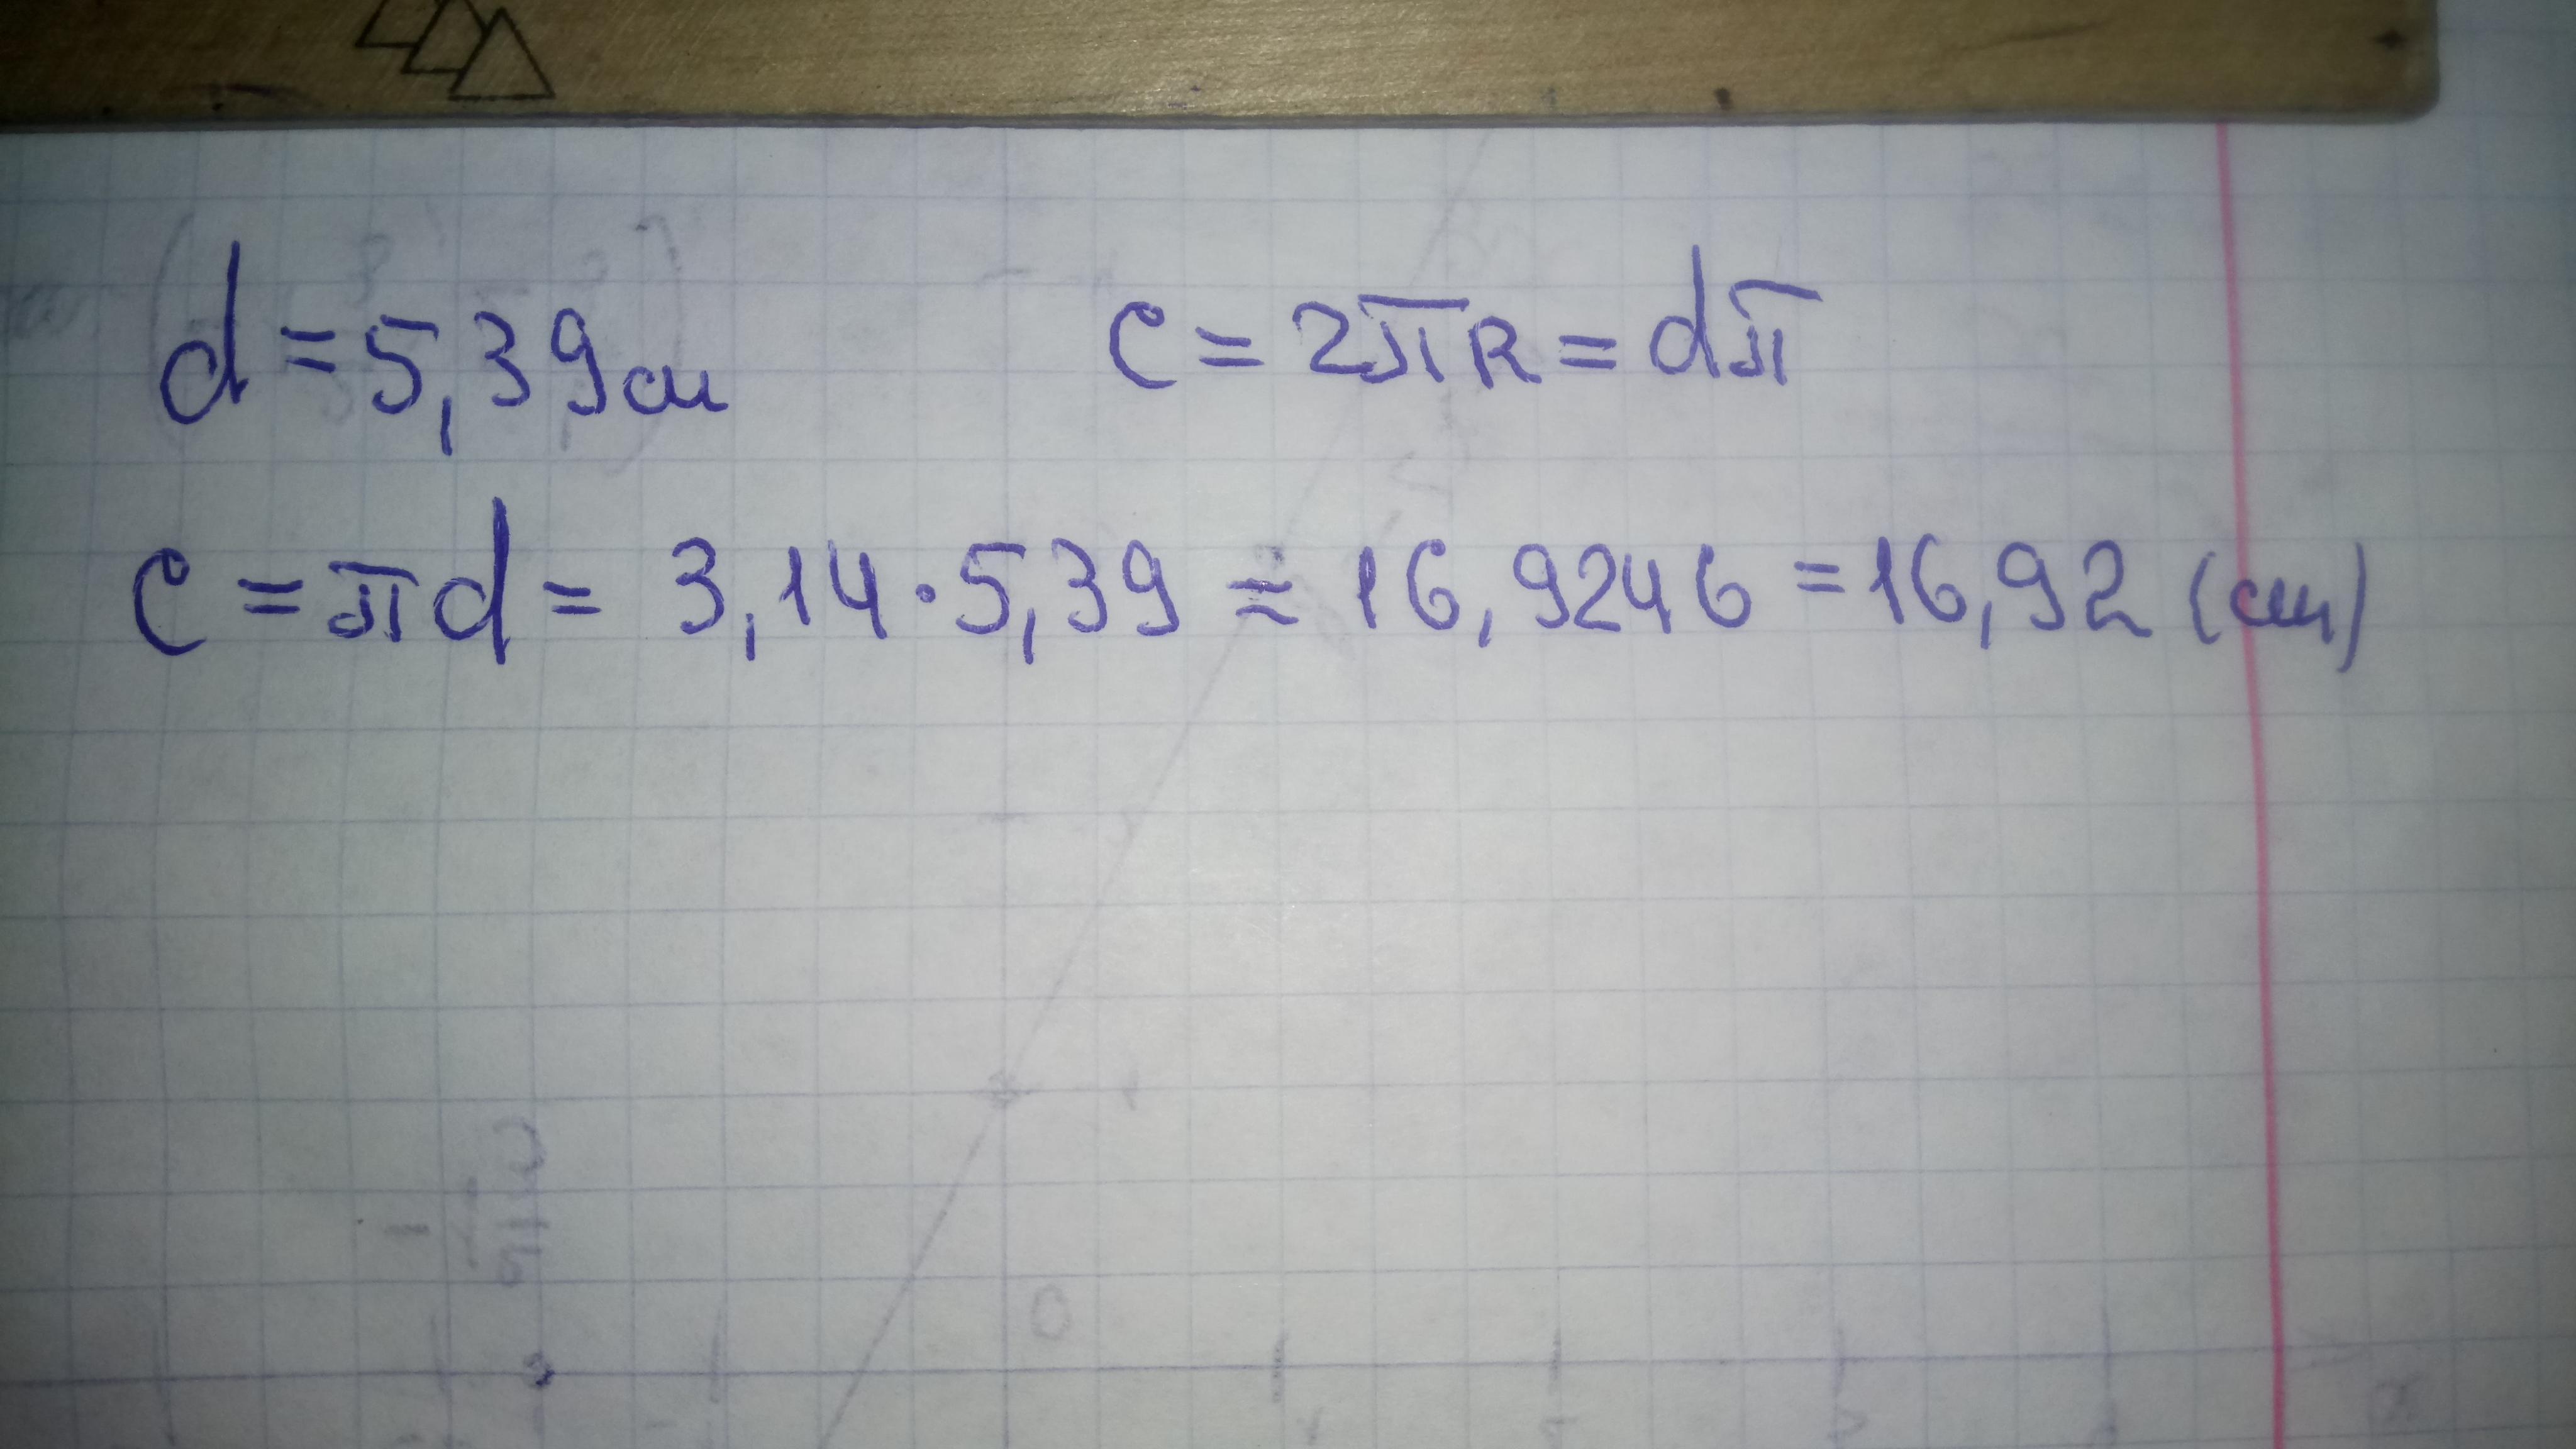 d = 5,39 см
C = 2πR = dπ
C = πd = 3,14 · 5,39 ≈ 16,9246 = 16,92 (см)
0